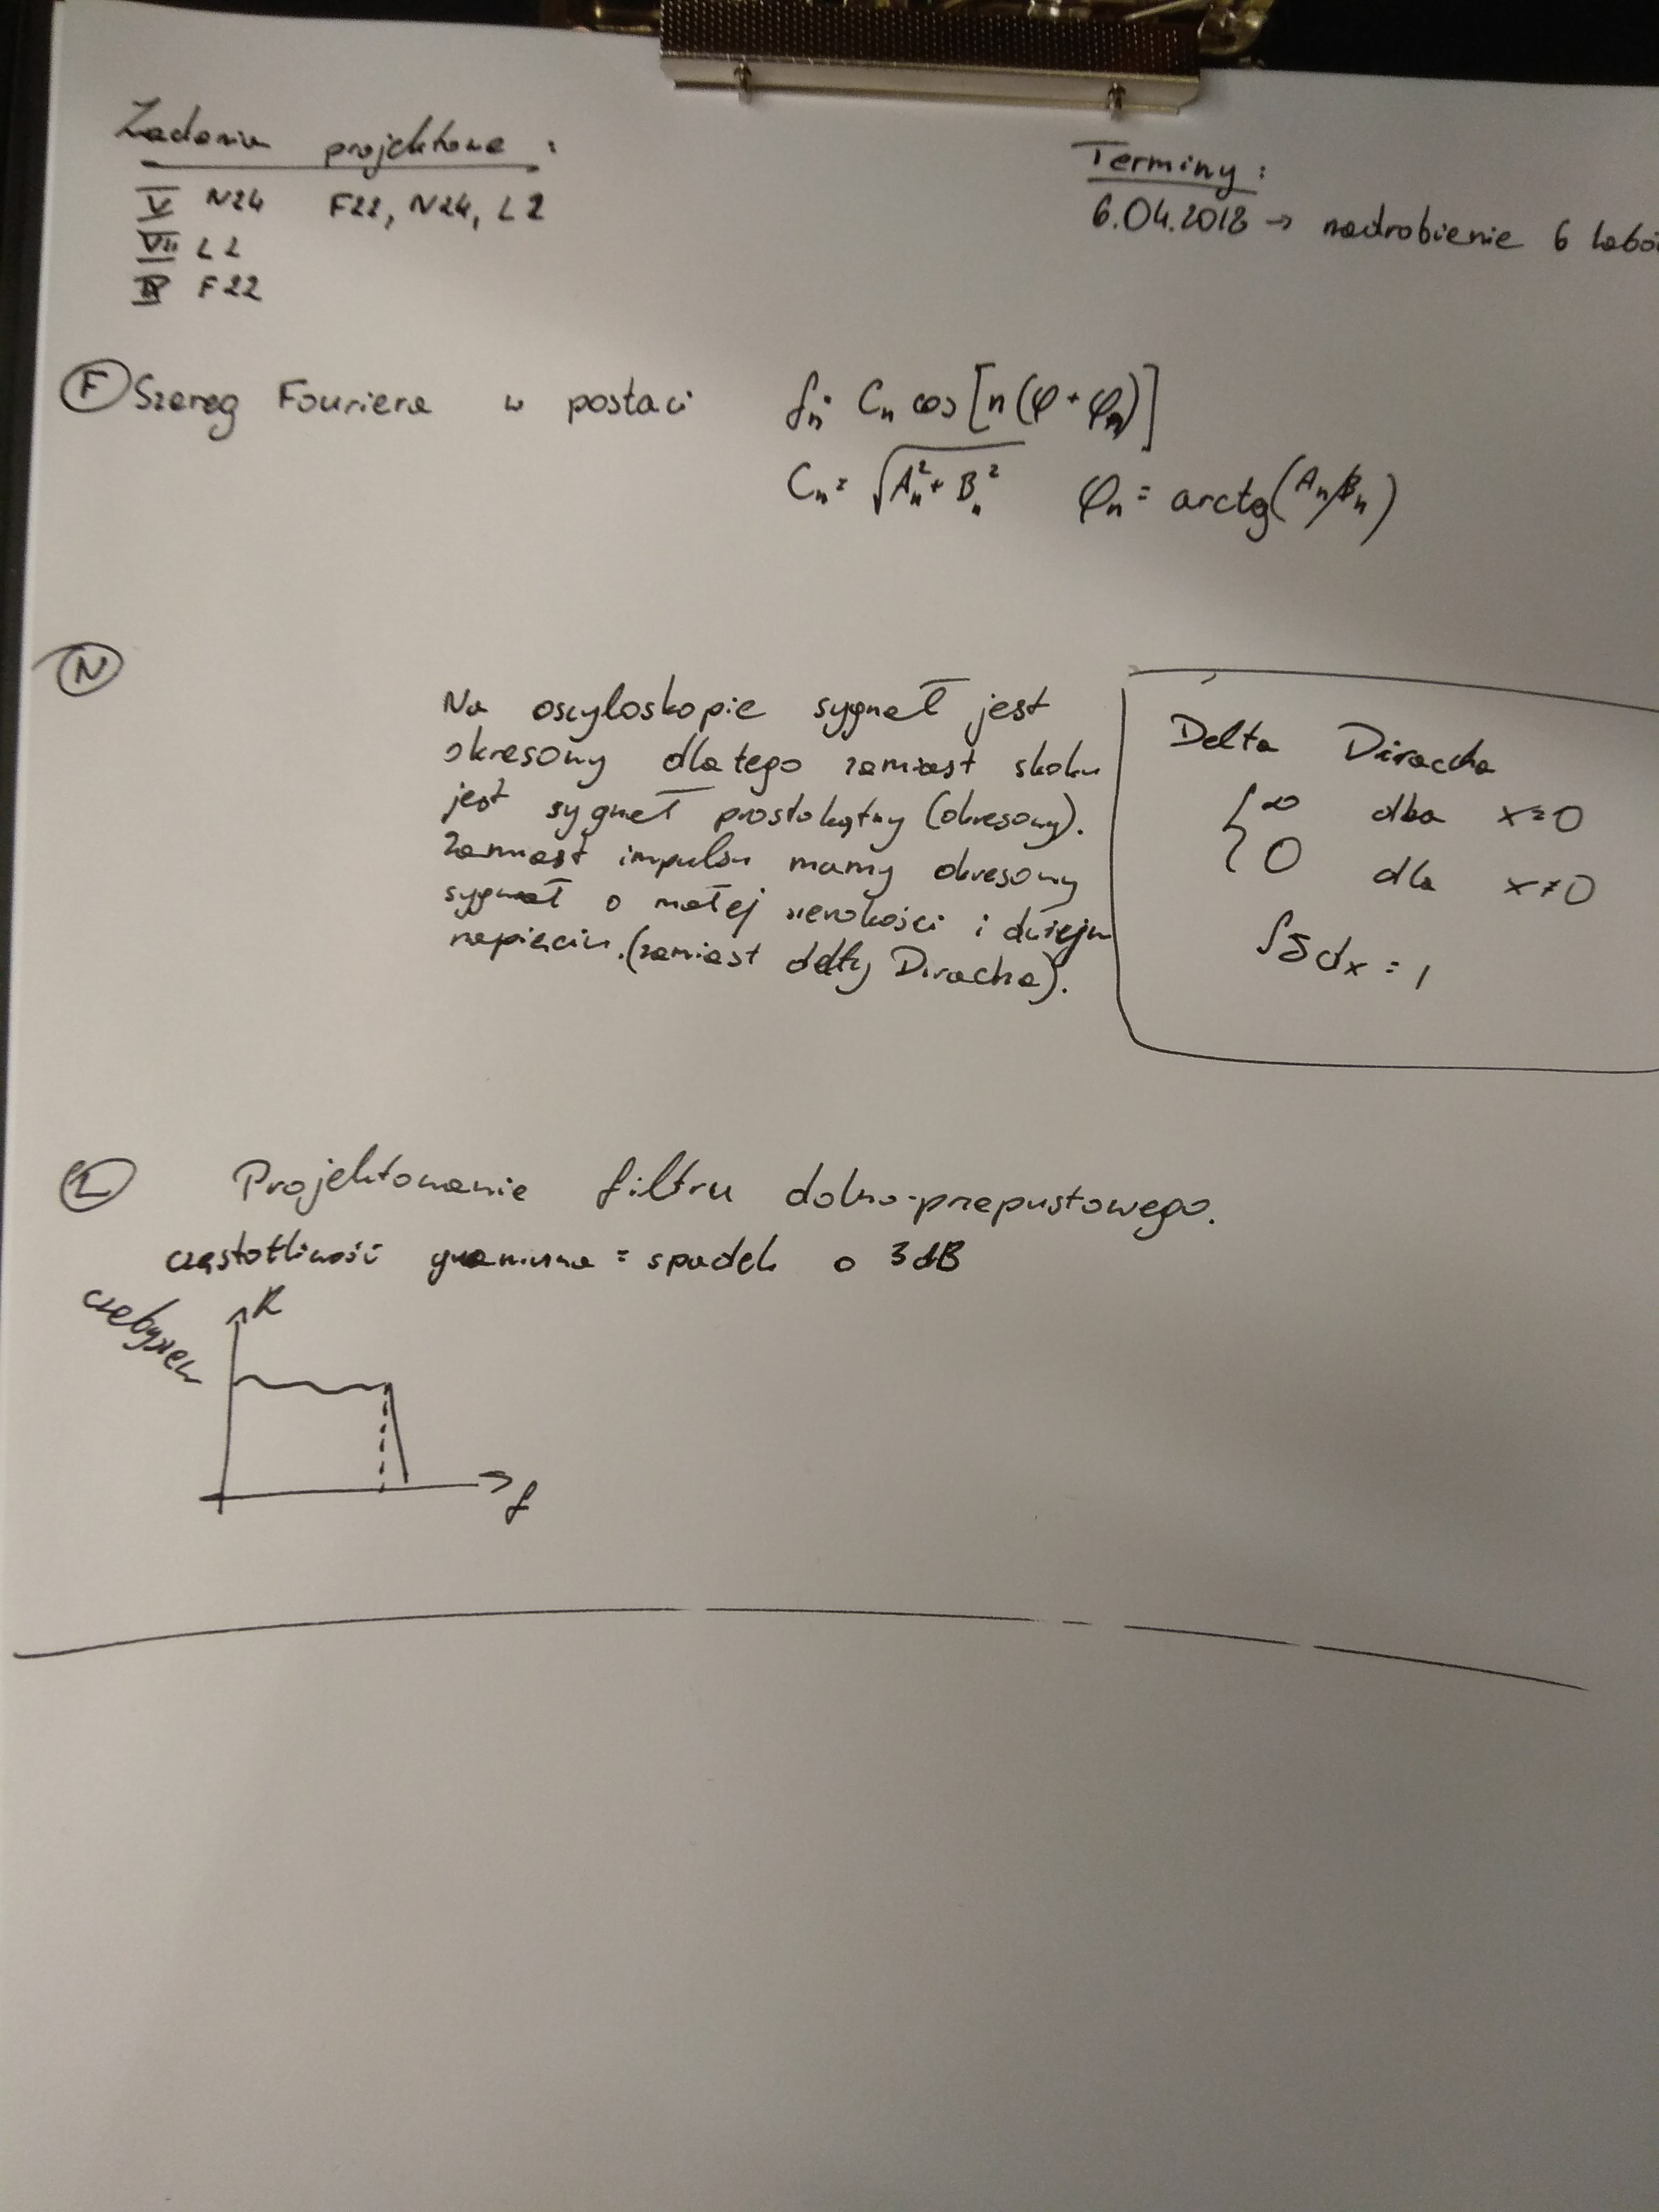 Zadania projektowe :
V N24 F22, N24, L2
VII L2
F22
Terminy :
6.04.2018 → nadrobienie 6 labó
F Szereg Fouriera w postaci fn = Cn cos[n(φ + φn)]
Cn = √An² + Bn² φn = arctg(An/Bn)
N
Na oscyloskopie sygnał jest
okresowy dlatego zamiast skoku
jest sygnał prostokątny (okresowy).
Zamiast impulsu mamy okresowy
sygnał o małej szerokości i dużym
napięciu. (zamiast delty Diracha).
Delta Diracha
{ ∞ dla x=0
0 dla x≠0
∫δdx = 1
L Projektowanie filtru dolno-przepustowego.
częstotliwość graniczna = spadek o 3dB
czebyszew
K
f